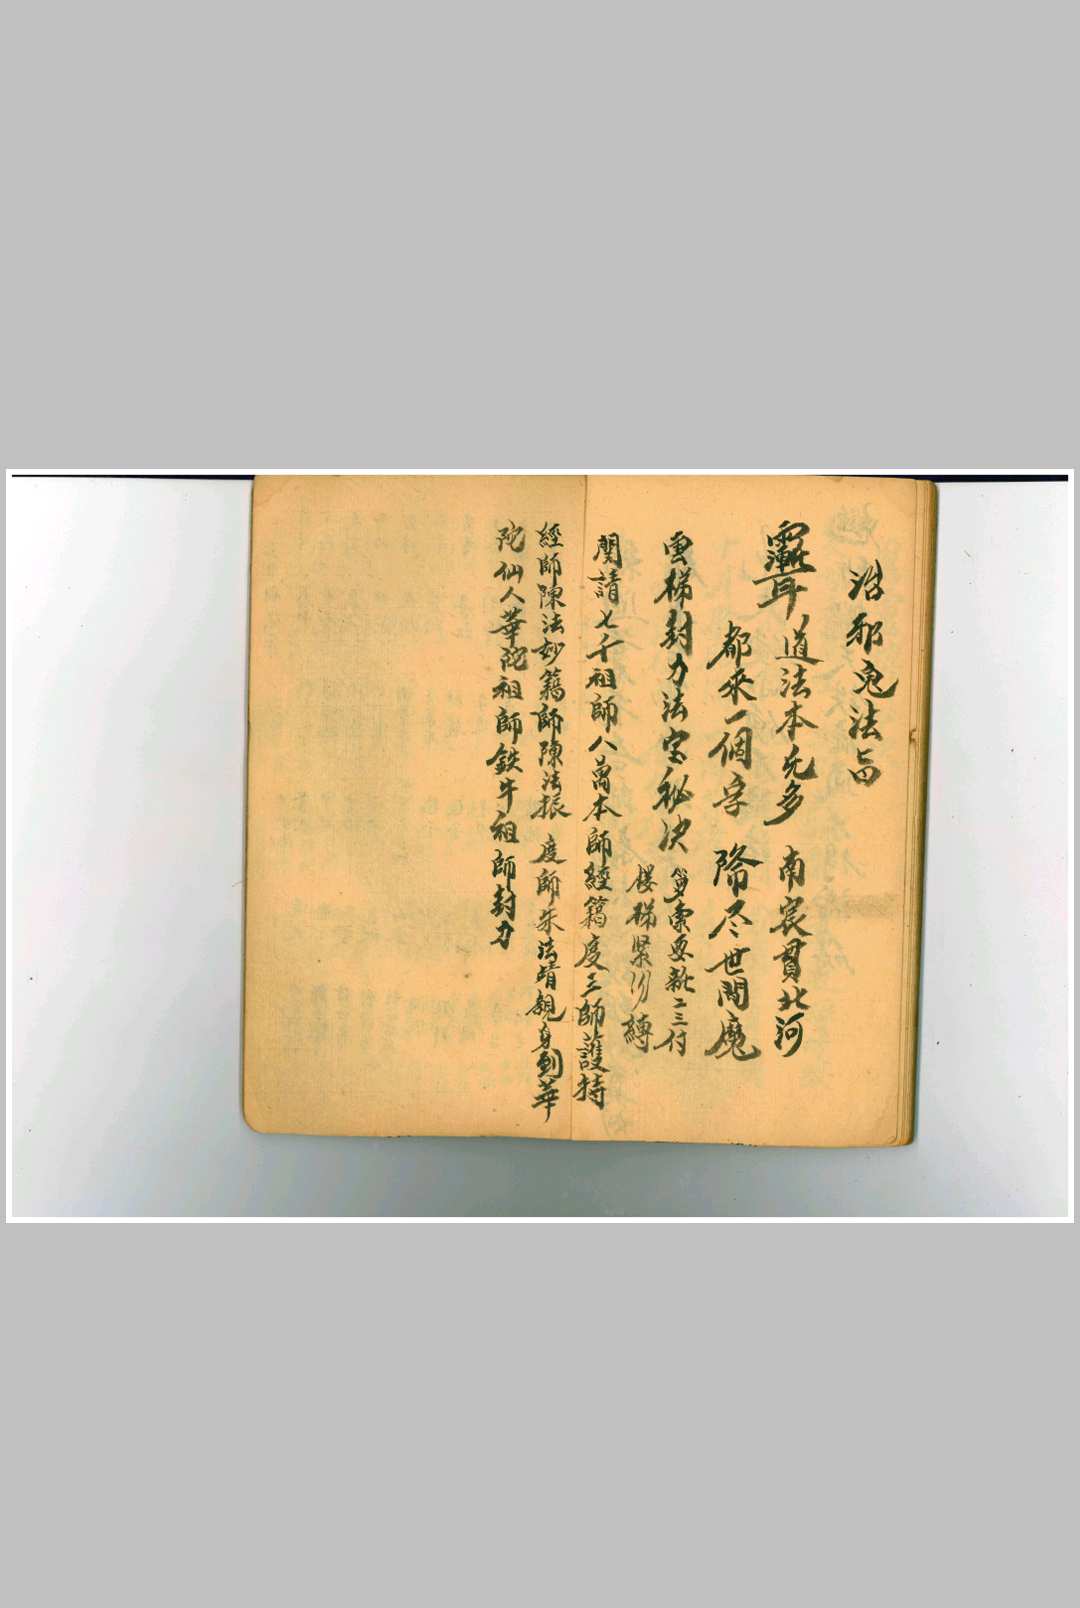 治邪鬼法
聻道法本无多 南宸貫北河
都來一個字 降尽世間魔
雲梯封刀法宝秘决
索要 二三付
楼梯緊 縛
関請七千祖師八萬本師經籍度三師護持
經師陳法妙籍師陳法振度師朱法晴親身到華
陀仙人華陀祖師鉄牛祖師封刀